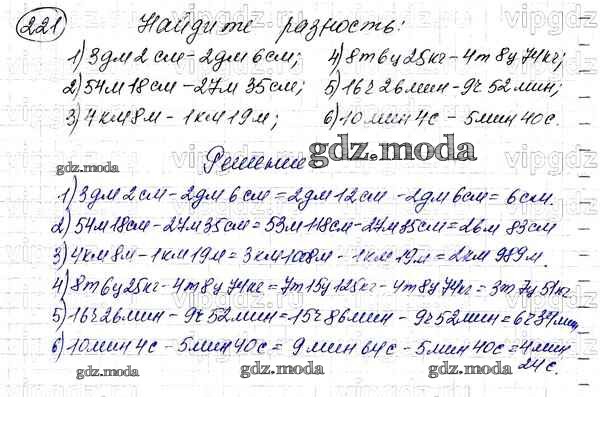 221 Найдите разность:
1) 3дм 2см - 2дм 6см; 4) 8т 6ц 25кг - 4т 8ц 74кг;
2) 54м 18см - 27м 35см; 5) 16ч 26мин - 9ч 52мин;
3) 4км 8м - 1км 19м; 6) 10мин 4с - 5мин 40с.
Решение
gdz.moda
gdz.moda
1) 3дм 2см - 2дм 6см = 2дм 12см - 2дм 6см = 6см.
2) 54м 18см - 27м 35см = 53м 118см - 27м 35см = 26м 83см
3) 4км 8м - 1км 19м = 3км 1008м - 1км 19м = 2км 989м.
4) 8т 6ц 25кг - 4т 8ц 74кг = 7т 15ц 125кг - 4т 8ц 74кг = 3т 7ц 51кг
5) 16ч 26мин - 9ч 52мин = 15ч 86мин - 9ч 52мин = 6ч 34мин
6) 10мин 4с - 5мин 40с = 9мин 64с - 5мин 40с = 4мин
24с.
gdz.moda gdz.moda gdz.moda